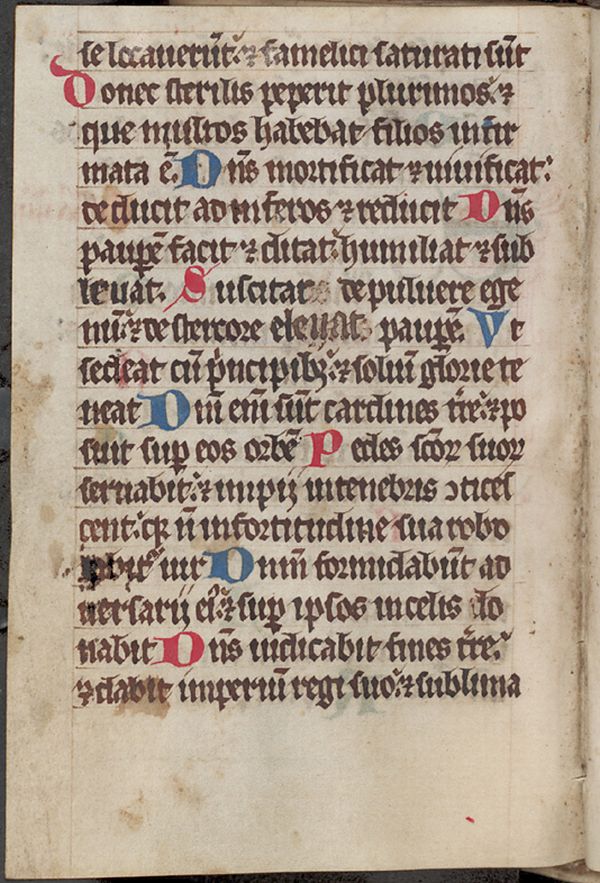 se locauerūt: ⁊ famelici saturati sūt
Donec sterilis peperit plurimos: ⁊
que multos habebat filios infir
mata ē. Dn̄s mortificat ⁊ uiuificat:
deducit ad inferos ⁊ reducit Dn̄s
pauperē facit ⁊ ditat: humiliat ⁊ sub
leuat. Suscitat de puluere ege
nū: ⁊ de stercore eleuat pauperē. Vt
sedeat cū p̄ncipibꝫ: ⁊ soliū glorie te
neat Dn̄i em̄ sūt cardines tr̄e: ⁊ po
suit sup eos orbē Pedes sc̄oꝝ suoꝝ
seruabit: ⁊ impij in tenebris ↄticef
cent: qꝫ n̄ in fortitudine sua robo
rabit᷑ uir Dn̄m formidabūt ad
uersarij ei᷒: ⁊ sup ipsos in celis to
nabit Dn̄s iudicabit fines tr̄e:
⁊ dabit imperiū regi suo: ⁊ sublima